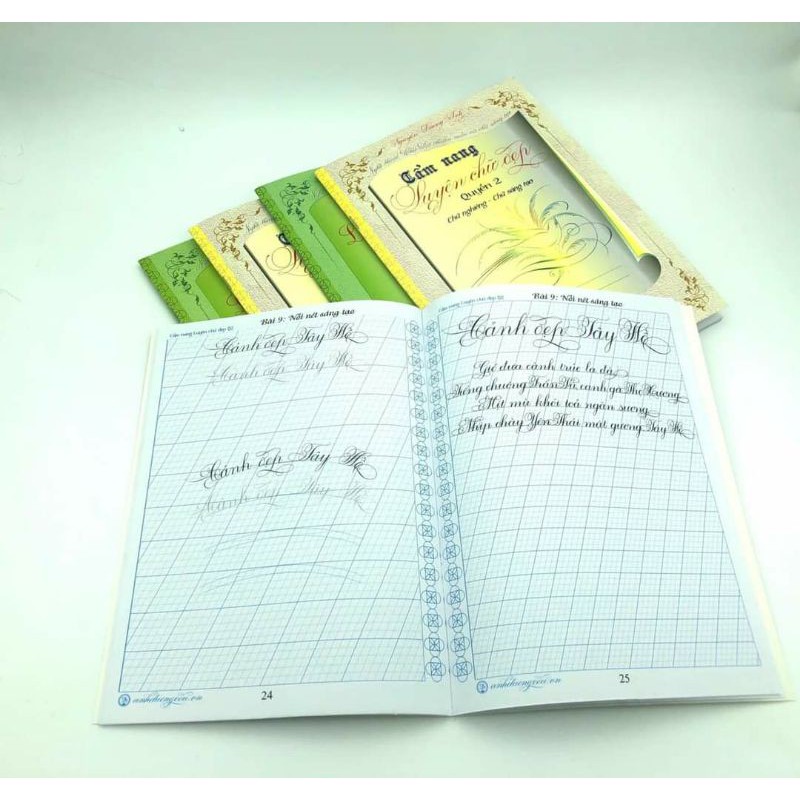 Nguyễn
Cẩm nang
Luyện chữ đẹp
Quyển 2
Chữ nghiêng - Chữ sáng tạo
Cẩm nang Luyện chữ đẹp Q2
Bài 9: Nối nét sáng tạo
Cảnh đẹp Tây Hồ
Cảnh đẹp Tây Hồ
Cảnh đẹp Tây Hồ
Cảnh đẹp Tây Hồ
24
Cẩm nang Luyện chữ đẹp Q2
Bài 9: Nối nét sáng tạo
Cảnh đẹp Tây Hồ
Gió đưa cành trúc la đà
Tiếng chuông Trấn Vũ, canh gà Thọ Xương
Mịt mù khói toả ngàn sương
Nhịp chày Yên Thái, mặt gương Tây Hồ
25